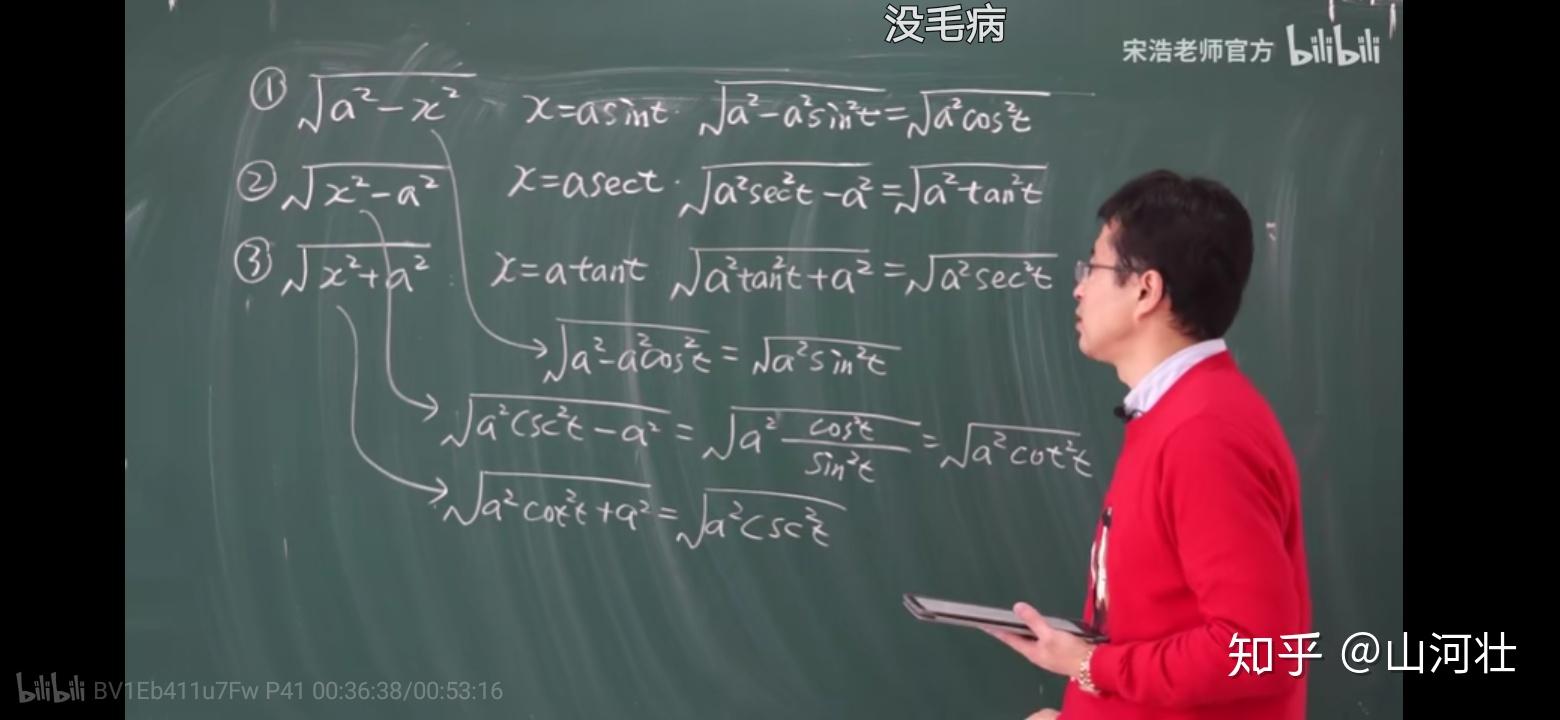 没毛病
宋浩老师官方 bilibili
① √(a²-x²) x=asint. √(a²-a²sin²t)=√(a²cos²t)
② √(x²-a²) x=asect. √(a²sec²t-a²)=√(a²tan²t)
③ √(x²+a²) x=atant √(a²tan²t+a²)=√(a²sec²t)
√(a²-a²cos²t)=√(a²sin²t)
√(a²csc²t-a²)=√(a² cos²t/sin²t)=√(a²cot²t)
√(a²cot²t+a²)=√(a²csc²t)
知乎 @山河壮
bilibili BV1Eb411u7Fw P41 00:36:38/00:53:16